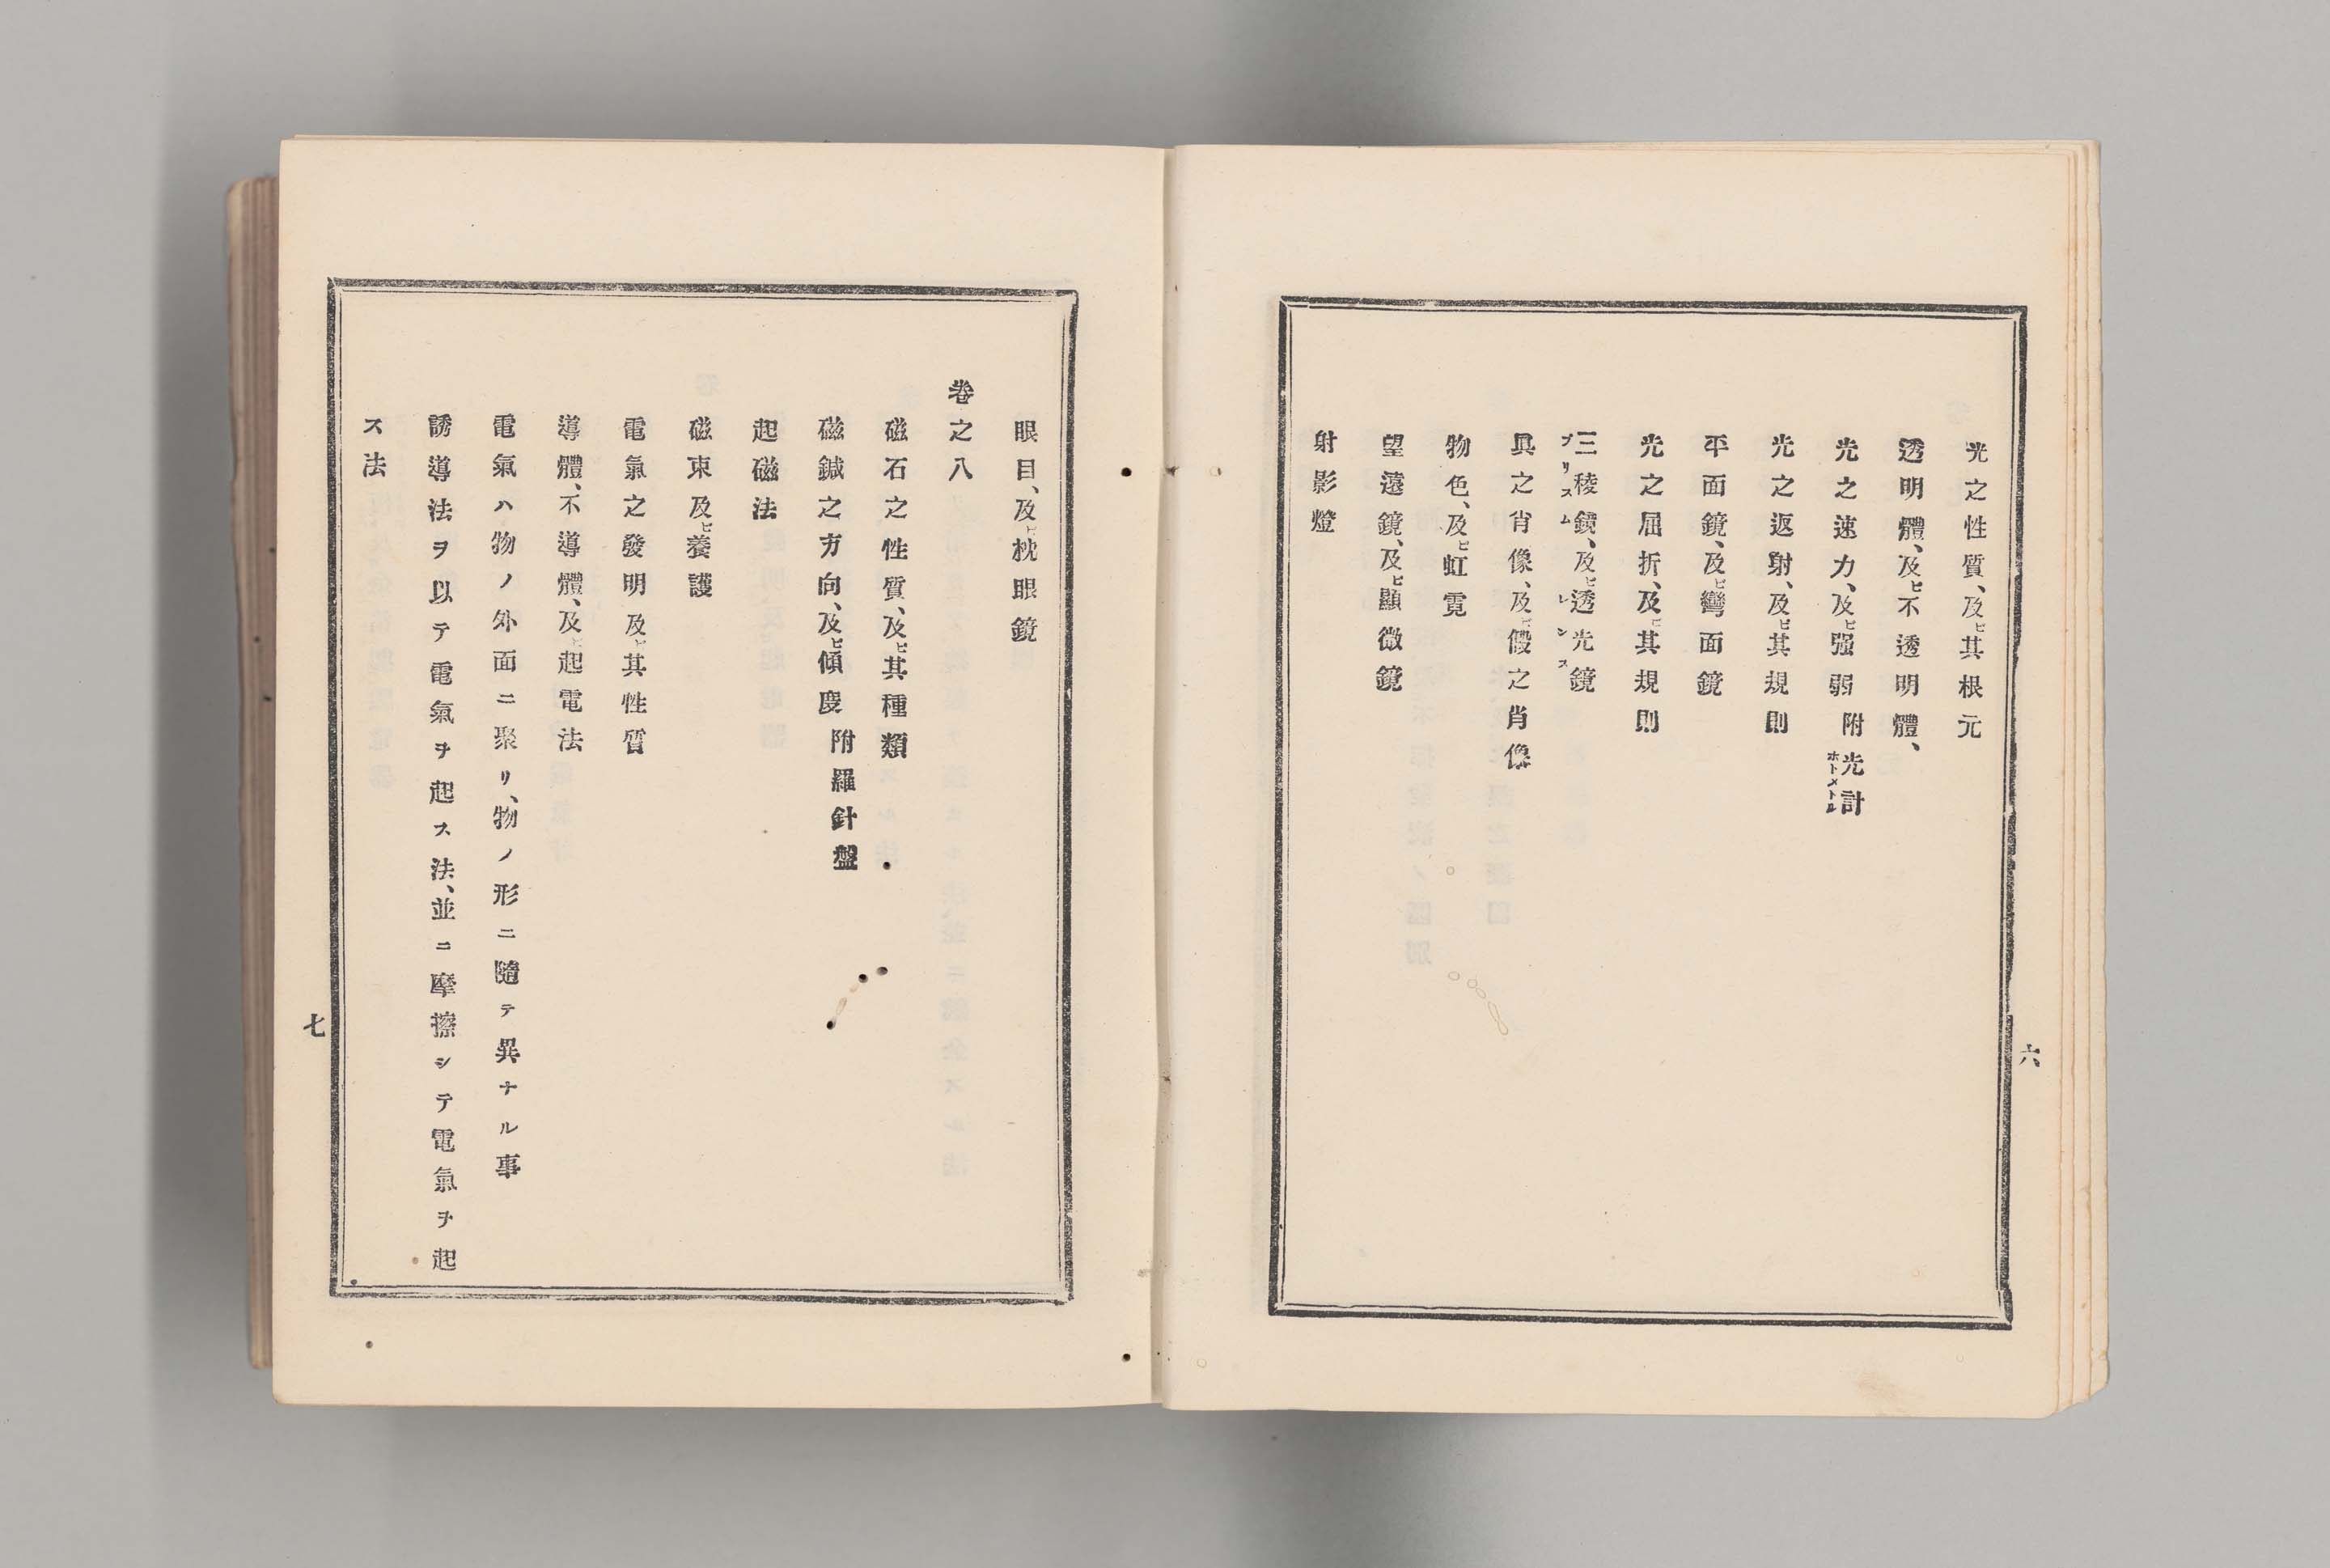 光之性質、及ヒ其根元
透明體、及ヒ不透明體、
光之速力、及ヒ强弱 附光計
ホトメトル
光之返射、及ヒ其規則
平面鏡、及ヒ彎面鏡
光之屈折、及ヒ其規則
三稜鏡、及ヒ透光鏡
プリスム レンス
眞之肖像、及ヒ假之肖像
物色、及ヒ虹霓
望遠鏡、及ヒ顯微鏡
射影燈
六
眼目、及ヒ枕眼鏡
卷之八
磁石之性質、及ヒ其種類
磁鍼之方向、及ヒ傾度 附羅針盤
起磁法
磁束及ヒ養護
電氣之發明及ヒ其性質
導體、不導體、及ヒ起電法
電氣ハ物ノ外面ニ聚リ、物ノ形ニ隨テ異ナル事
誘導法ヲ以テ電氣ヲ起ス法、並ニ摩擦シテ電氣ヲ起
ス法
七